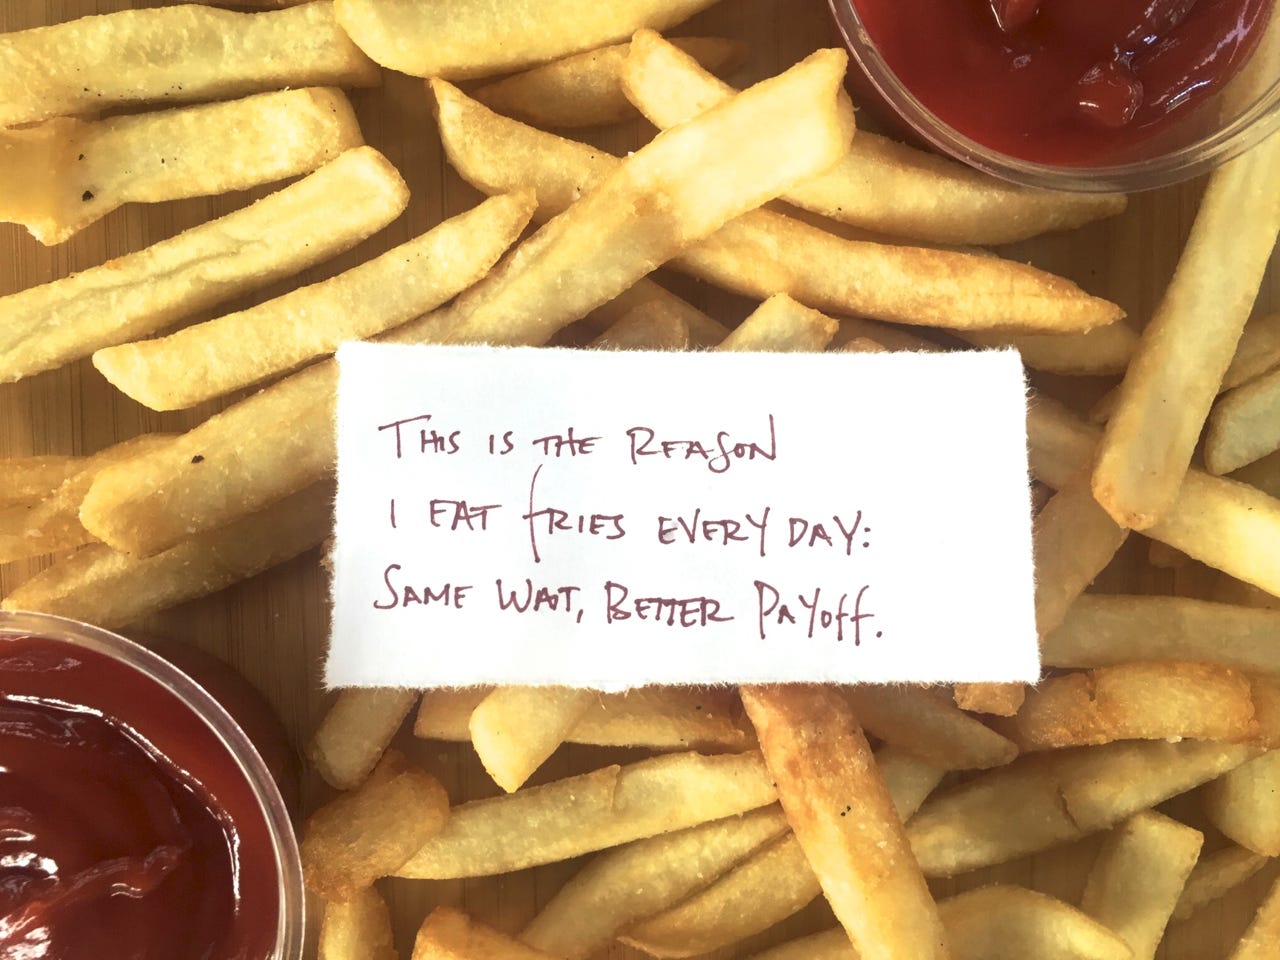 THIS IS THE REASON
I EAT FRIES EVERY DAY:
SAME WAIT, BETTER PAYOFF.